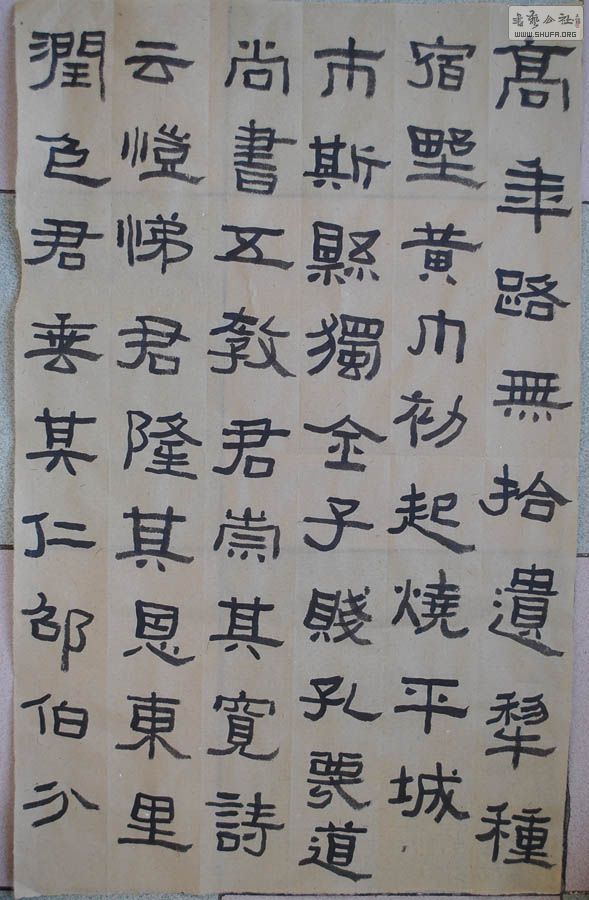 高年路無拾遺犂種
宿野黃巾初起燒平城
市斯縣獨全子賤孔蔑道
尚書五教君崇其寬詩
云愷悌君隆其恩東里
潤色君垂其仁邵伯分
書藝公社
WWW.SHUFA.ORG